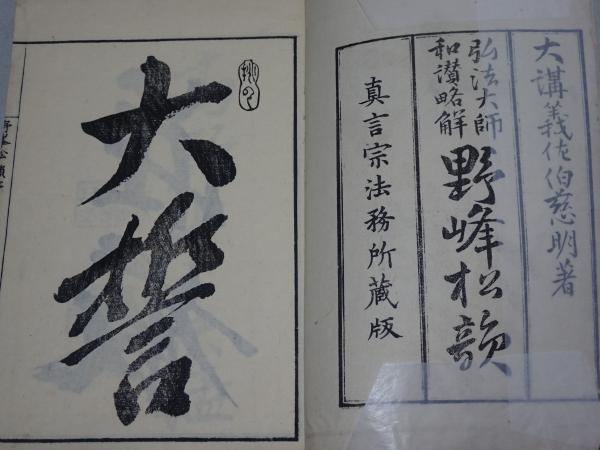 大講義佐伯慈明著
弘法大師
和讃略解
野峰松韻
真言宗法務所蔵版
大誓